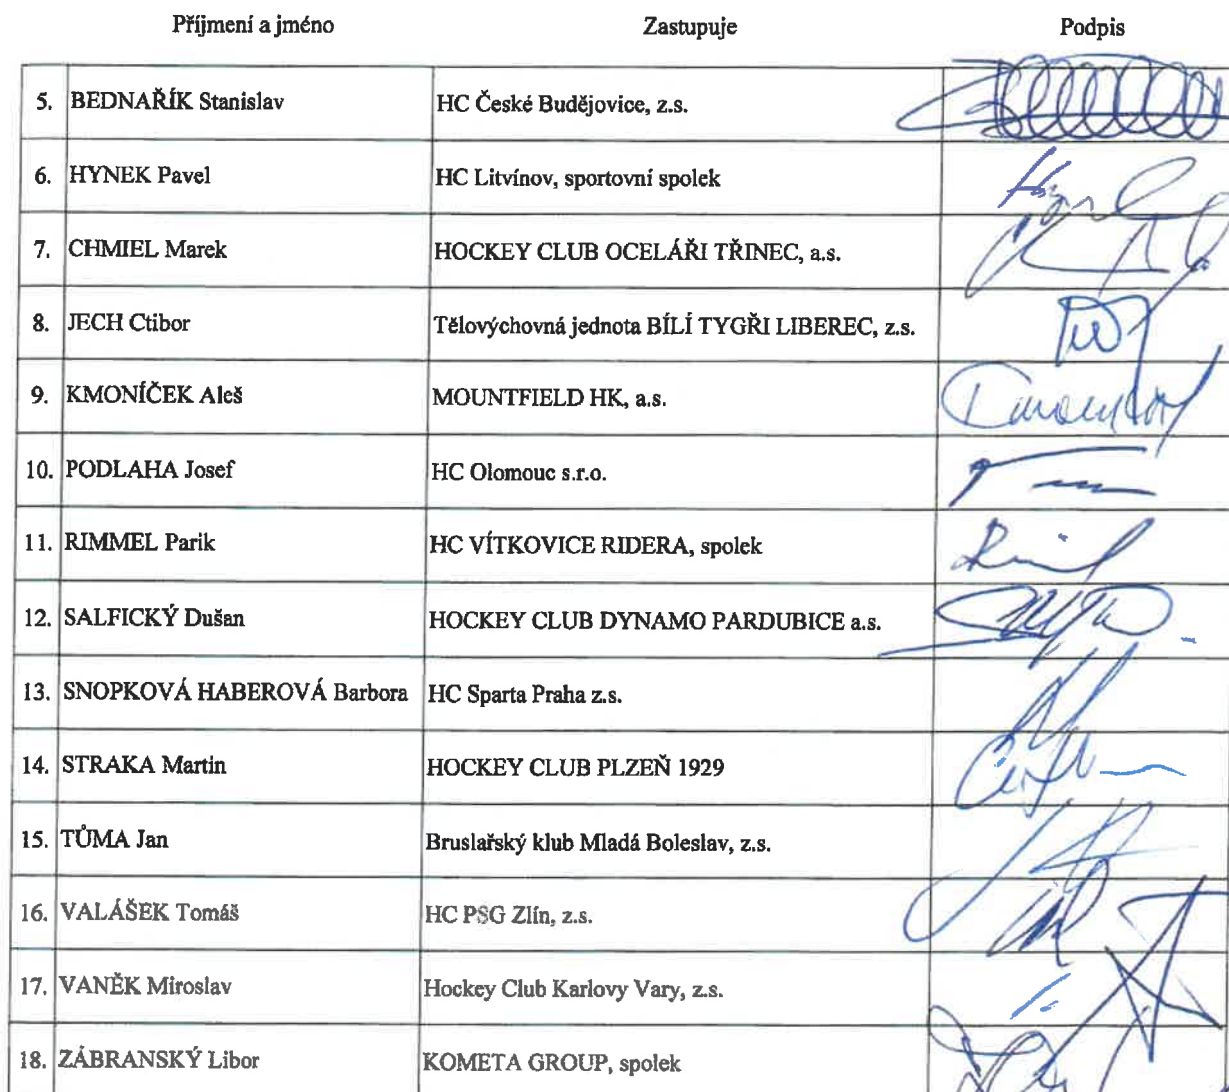 Příjmení a jméno Zastupuje Podpis
5. BEDNAŘÍK Stanislav HC České Budějovice, z.s.
6. HYNEK Pavel HC Litvínov, sportovní spolek
7. CHMIEL Marek HOCKEY CLUB OCELÁŘI TŘINEC, a.s.
8. JECH Ctibor Tělovýchovná jednota BÍLÍ TYGŘI LIBEREC, z.s.
9. KMONÍČEK Aleš MOUNTFIELD HK, a.s.
10. PODLAHA Josef HC Olomouc s.r.o.
11. RIMMEL Parik HC VÍTKOVICE RIDERA, spolek
12. SALFICKÝ Dušan HOCKEY CLUB DYNAMO PARDUBICE a.s.
13. SNOPKOVÁ HABEROVÁ Barbora HC Sparta Praha z.s.
14. STRAKA Martin HOCKEY CLUB PLZEŇ 1929
15. TŮMA Jan Bruslařský klub Mladá Boleslav, z.s.
16. VALÁŠEK Tomáš HC PSG Zlín, z.s.
17. VANĚK Miroslav Hockey Club Karlovy Vary, z.s.
18. ZÁBRANSKÝ Libor KOMETA GROUP, spolek